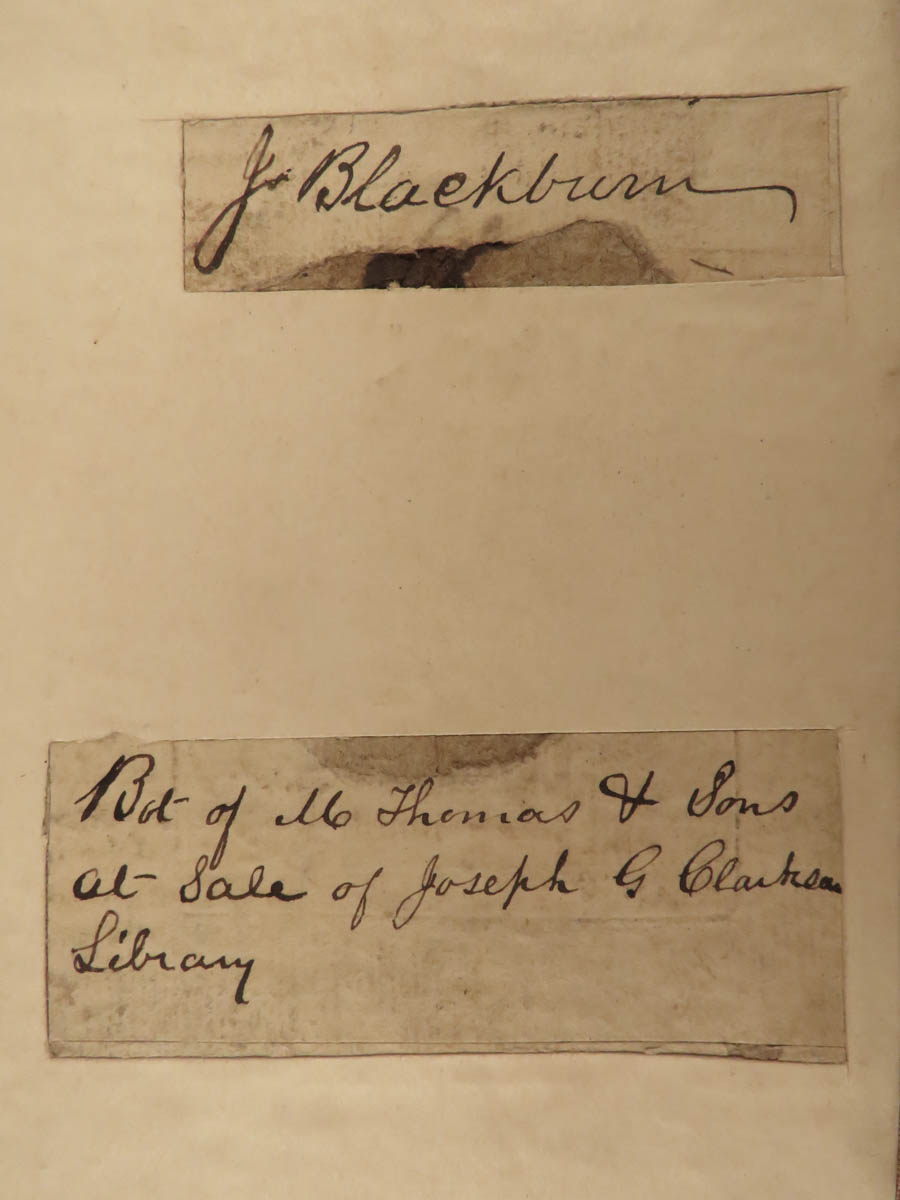 Js Blackburn
Bot of M Thomas & Sons
at Sale of Joseph G Clarkson
Library